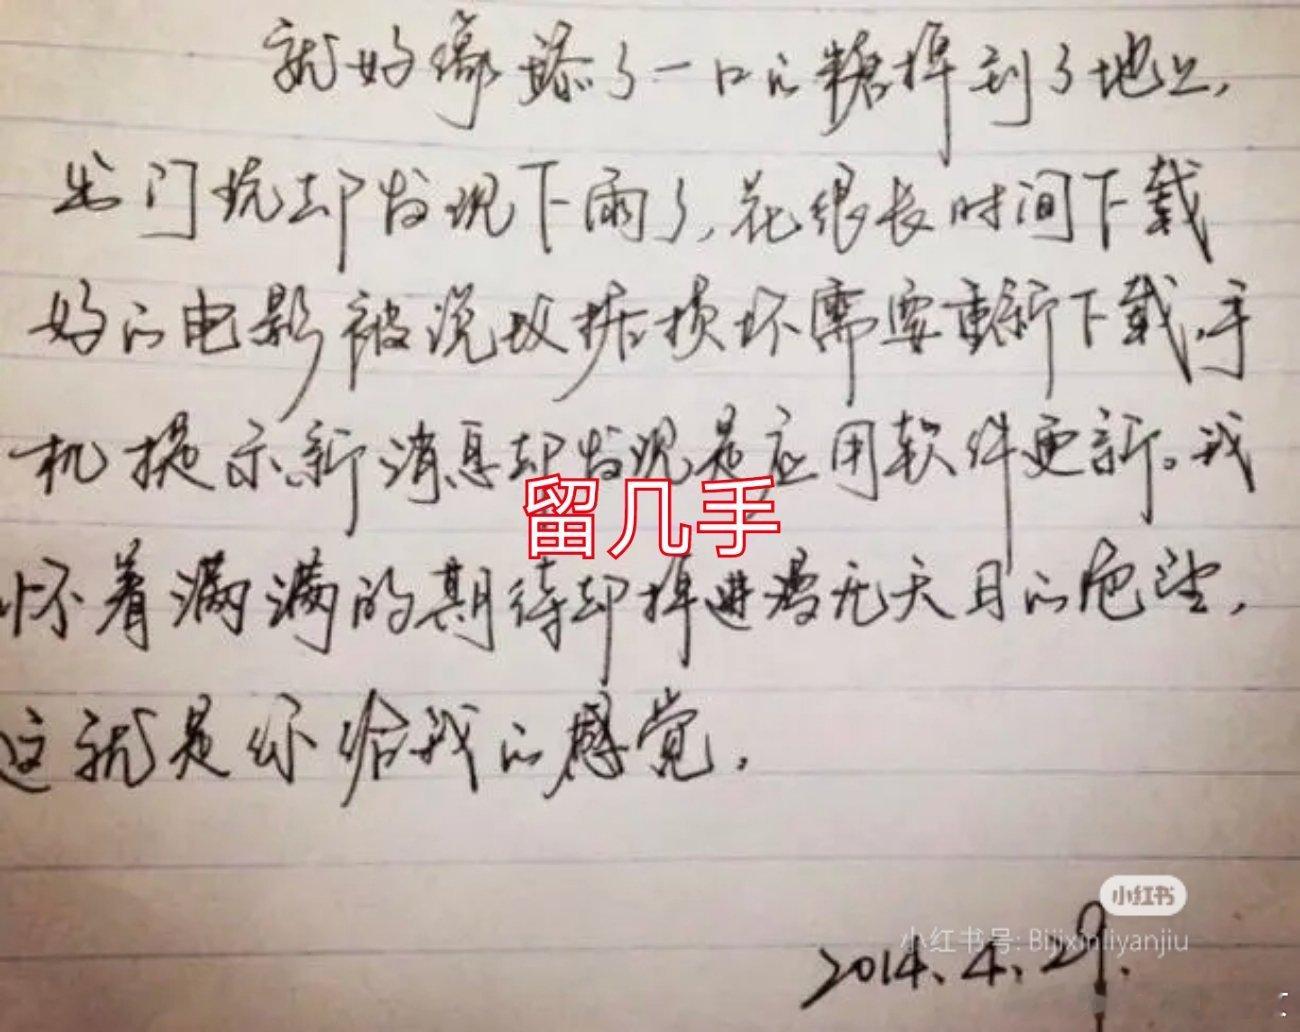 就好像舔了一口的糖掉到了地上,
出门玩却发现下雨了,花很长时间下载
好的电影被说数据损坏需要重新下载,手
机提示新消息却发现是应用软件更新。我
怀着满满的期待却掉进暗无天日的绝望,
这就是你给我的感觉.
2014.4.29.
留几手
小红书
小红书号: Bijixinliyanjiu